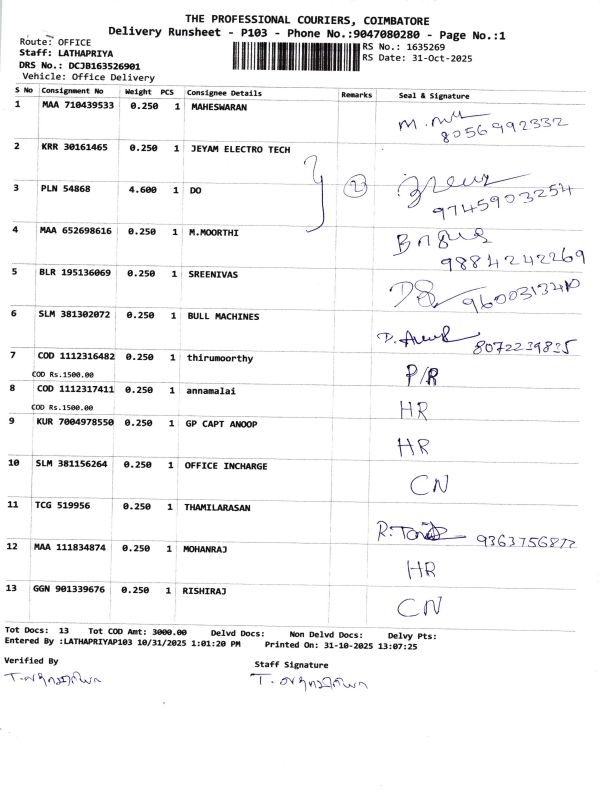 THE PROFESSIONAL COURIERS, COIMBATORE
Delivery Runsheet - P103 - Phone No.:9047080280 - Page No.:1
Route: OFFICE
RS No.: 1635269
Staff: LATHAPRIYA
RS Date: 31-Oct-2025
DRS No.: DCJB163526901
Vehicle: Office Delivery
S No Consignment No Weight PCS Consignee Details Remarks Seal & Signature
1 MAA 710439533 0.250 1 MAHESWARAN
8056992332
2 KRR 30161465 0.250 1 JEYAM ELECTRO TECH
3 PLN 54868 4.600 1 DO 2
9745903254
4 MAA 652698616 0.250 1 M.MOORTHI
9884242269
5 BLR 195136069 0.250 1 SREENIVAS
6 SLM 381302072 0.250 1 BULL MACHINES
8072239835
7 COD 1112316482 0.250 1 thirumoorthy P/R
COD Rs.1500.00
8 COD 1112317411 0.250 1 annamalai HR
COD Rs.1500.00
9 KUR 7004978550 0.250 1 GP CAPT ANOOP HR
10 SLM 381156264 0.250 1 OFFICE INCHARGE CN
11 TCG 519956 0.250 1 THAMILARASAN
12 MAA 111834874 0.250 1 MOHANRAJ HR
13 GGN 901339676 0.250 1 RISHIRAJ CN
Tot Docs: 13 Tot COD Amt: 3000.00 Delvd Docs: Non Delvd Docs: Delvy Pts:
Entered By :LATHAPRIYAP103 10/31/2025 1:01:20 PM Printed On: 31-10-2025 13:07:25
Verified By Staff Signature